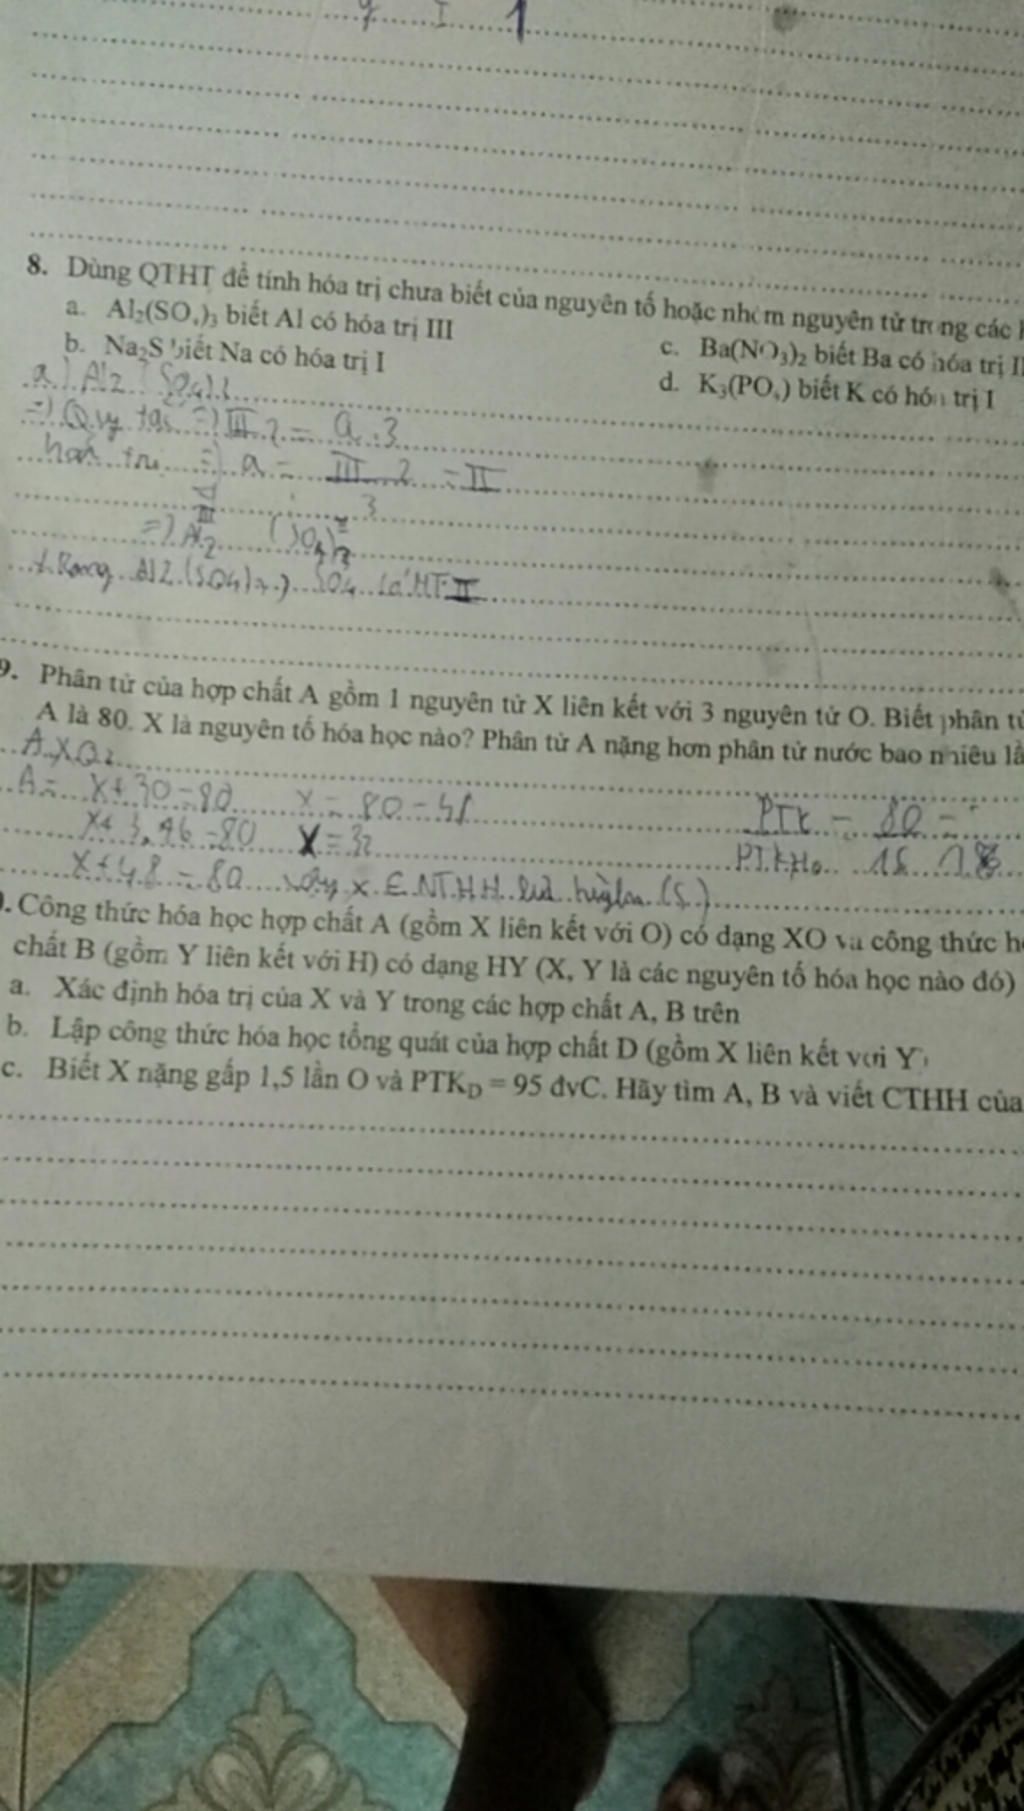 8. Dùng QTHT để tính hóa trị chưa biết của nguyên tố hoặc nhóm nguyên tử trong các
a. Al₂(SO₄)₃ biết Al có hóa trị III
b. Na₂S biết Na có hóa trị I
c. Ba(NO₃)₂ biết Ba có hóa trị II
d. K₃(PO₄) biết K có hóa trị I
a) Al2 (SO4)
=) Quy tắc =) III.2 = a.3
hoá trị =) a = III.2 = II
3
III II
=) Al2 (SO4)3
Al2(SO4) SO4 HT II
9. Phân tử của hợp chất A gồm 1 nguyên tử X liên kết với 3 nguyên tử O. Biết phân tử
A là 80. X là nguyên tố hóa học nào? Phân tử A nặng hơn phân tử nước bao nhiêu
A XO
A = X + 3O = 80 X = 80 - 48
X + 3.16 = 80 X = 32
X + 48 = 80 vậy X NTHH (S)
PTK = 80 =
18
. Công thức hóa học hợp chất A (gồm X liên kết với O) có dạng XO và công thức
chất B (gồm Y liên kết với H) có dạng HY (X, Y là các nguyên tố hóa học nào đó)
a. Xác định hóa trị của X và Y trong các hợp chất A, B trên
b. Lập công thức hóa học tổng quát của hợp chất D (gồm X liên kết với Y)
c. Biết X nặng gấp 1,5 lần O và PTK_D = 95 đvC. Hãy tìm A, B và viết CTHH của